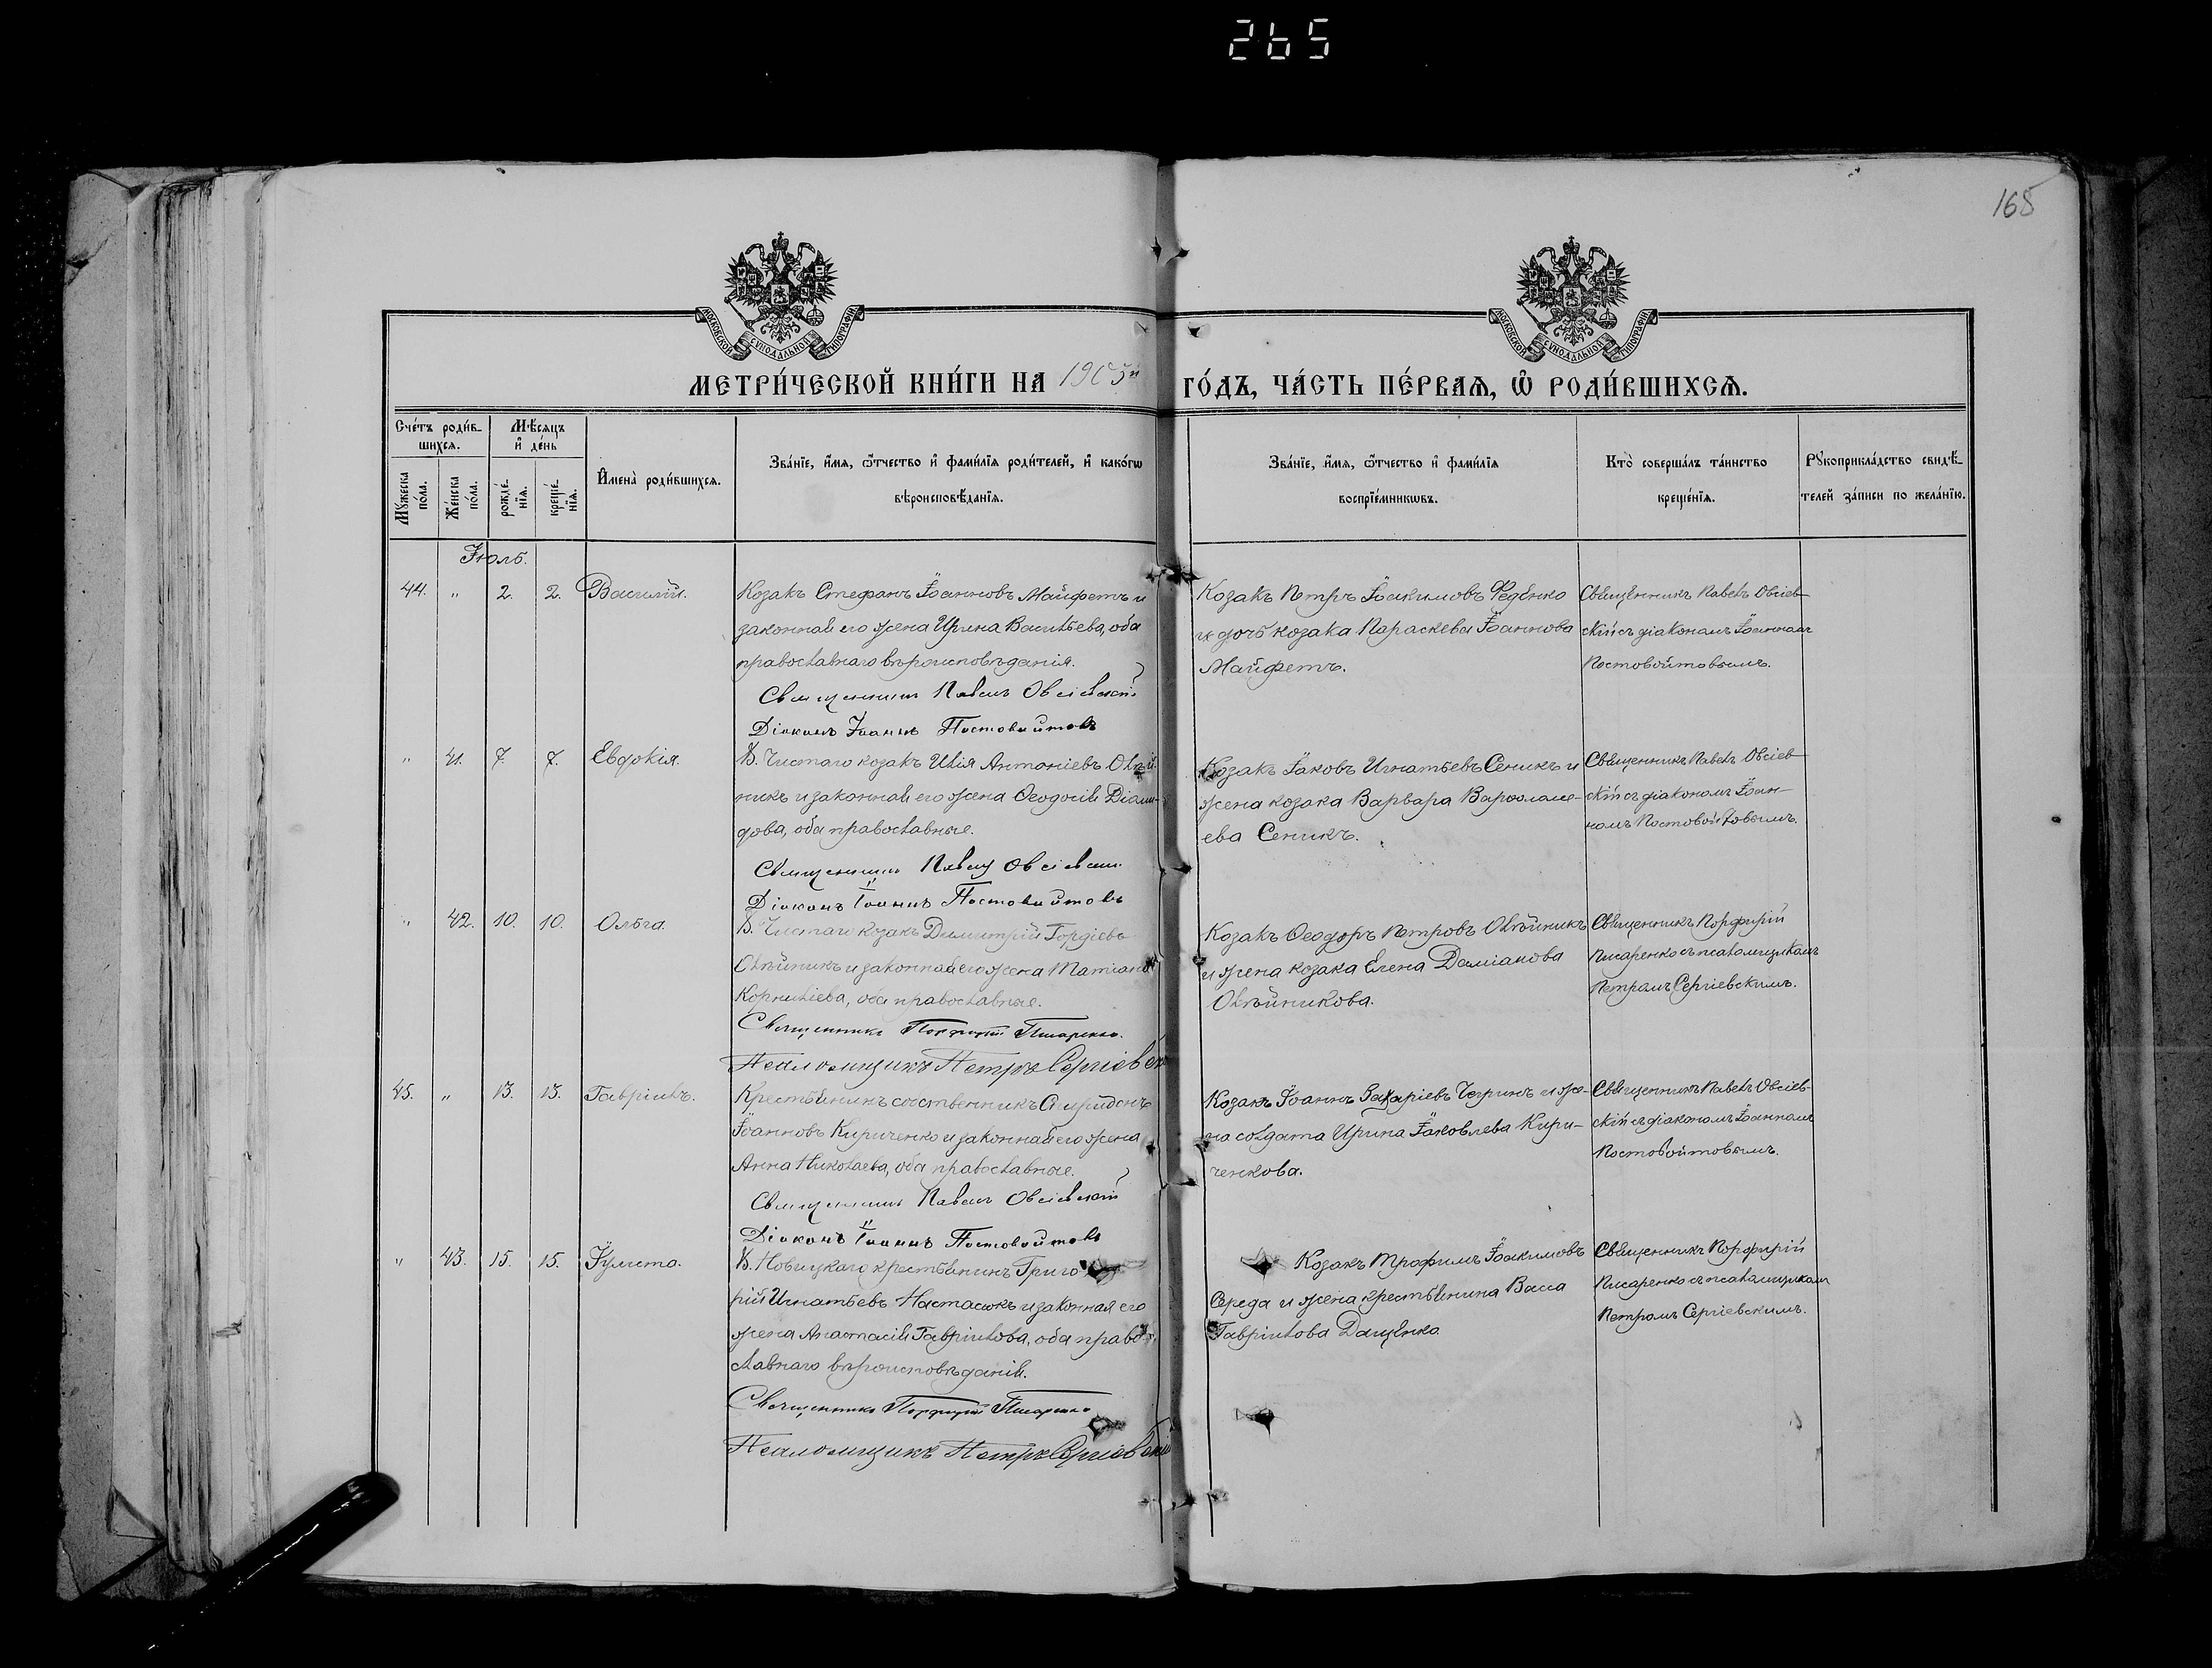 265
168
МОСКОВСКОЙ СѴНОДАЛЬНОЙ ТИПОГРАФІИ
МОСКОВСКОЙ СѴНОДАЛЬНОЙ ТИПОГРАФІИ
МЕТРИ́ЧЕСКОЙ КНИ́ГИ НА 1905й ГО́ДЪ, ЧА́СТЬ ПЕ́РВАѦ, Ѡ҆ РОДИ́ВШИХСѦ.
Сче́тъ роди́в-
шихсѧ.
Мѣ́сѧцъ
и҆ де́нь
Мꙋ́жеска
по́ла.
Же́нска
по́ла.
рожде́-
нїѧ.
креще́-
нїѧ.
И҆мена̀ роди́вшихсѧ.
Зва́нїе, и҆́мѧ, ѻ҆́тчество и҆ фами́лїѧ роди́телей, и҆ како́гѡ
вѣроисповѣ́данїѧ.
Зва́нїе, и҆́мѧ, ѻ҆́тчество и҆ фами́лїѧ
воспрїе́мникѡвъ.
Кто̀ соверша́лъ та́инство
креще́нїѧ.
Рꙋкоприкла́дство свидѣ́-
телей за́писи по жела́нїю.
Іюль.
44. " 2. 2. Василій.
Козакъ Стефанъ Іоанновъ Майфетъ и
законная его жена Ирина Васильева, оба
православнаго вѣроисповѣданія.
Священникъ Павелъ Овсіевскій
Діаконъ Іоаннъ Постовойтовъ
Козакъ Петръ Іоакимовъ Феденко
и дочь козака Параскева Іоаннова
Майфетъ.
Священникъ Павелъ Овсіев-
скій съ діакономъ Іоанномъ
Постовойтовымъ.
" 41. 7. 7. Евдокія.
Х. Чистаго козакъ Илія Антоніевъ Олѣй-
никъ и законная его жена Ѳеодосія Діоми-
дова, оба православные.
Священникъ Павелъ Овсіевскій
Діаконъ Іоаннъ Постовойтовъ
Козакъ Іаковъ Игнатьевъ Сеникъ и
жена козака Варвара Варѳоломе-
ева Сеникъ.
Священникъ Павелъ Овсіев-
скій съ діакономъ Іоан-
номъ Постовойтовымъ.
" 42. 10. 10. Ольга.
Х. Чистаго козакъ Димитрій Гордіевъ
Олѣйникъ и законная его жена Татіана
Корниліева, оба православные.
Священникъ Порфирій Писаренко.
Псаломщикъ Петръ Сергіевскій
Козакъ Ѳеодоръ Петровъ Олѣйникъ
и жена козака Елена Даміанова
Олѣйникова.
Священникъ Порфирій
Писаренко съ псаломщикомъ
Петромъ Сергіевскимъ.
45. " 13. 13. Гавріилъ.
Крестьянинъ собственникъ Спиридонъ
Іоанновъ Кириченко и законная его жена
Анна Николаева, оба православные.
Священникъ Павелъ Овсіевскій
Діаконъ Іоаннъ Постовойтовъ
Козакъ Іоаннъ Захаріевъ Чегринъ и же-
на солдата Ирина Іаковлева Кири-
ченкова.
Священникъ Павелъ Овсіев-
скій съ діакономъ Іоанномъ
Постовойтовымъ.
" 43. 15. 15. Іулитта.
Х. Новицкаго крестьянинъ Григо-
рій Игнатьевъ Настасюкъ и законная его
жена Анастасія Гавріилова, оба право-
славнаго вѣроисповѣданія.
Священникъ Порфирій Писаренко
Псаломщикъ Петръ Сергіевскій
Козакъ Трофимъ Іоакимовъ
Середа и жена крестьянина Васса
Гавріилова Даценко
Священникъ Порфирій
Писаренко съ псаломщикомъ
Петромъ Сергіевскимъ.